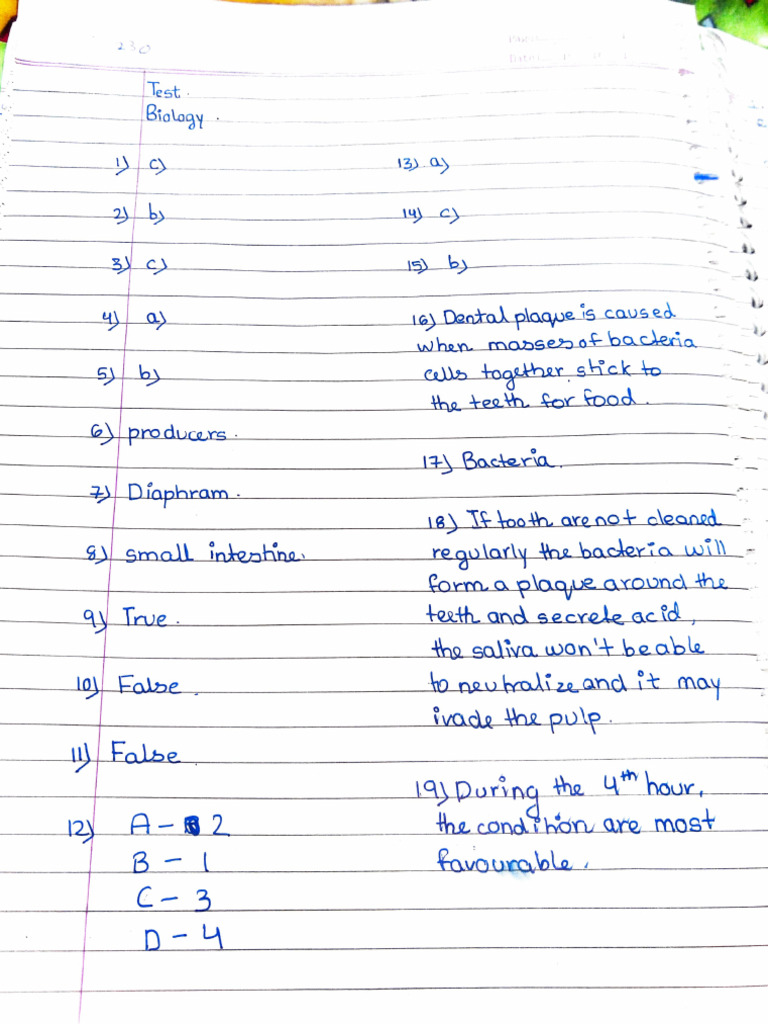 230
Test.
Biology.
1) c)
2) b)
3) c)
4) a)
5) b)
6) producers.
7) Diaphram.
8) small intestine.
9) True.
10) False.
11) False.
12) A - 2
B - 1
C - 3
D - 4
13) a)
14) c)
15) b)
16) Dental plaque is caused
when masses of bacteria
cells together stick to
the teeth for food.
17) Bacteria.
18) If tooth are not cleaned
regularly the bacteria will
form a plaque around the
teeth and secrete acid,
the saliva won't be able
to neutralize and it may
ivade the pulp.
19) During the 4th hour,
the condition are most
favourable.